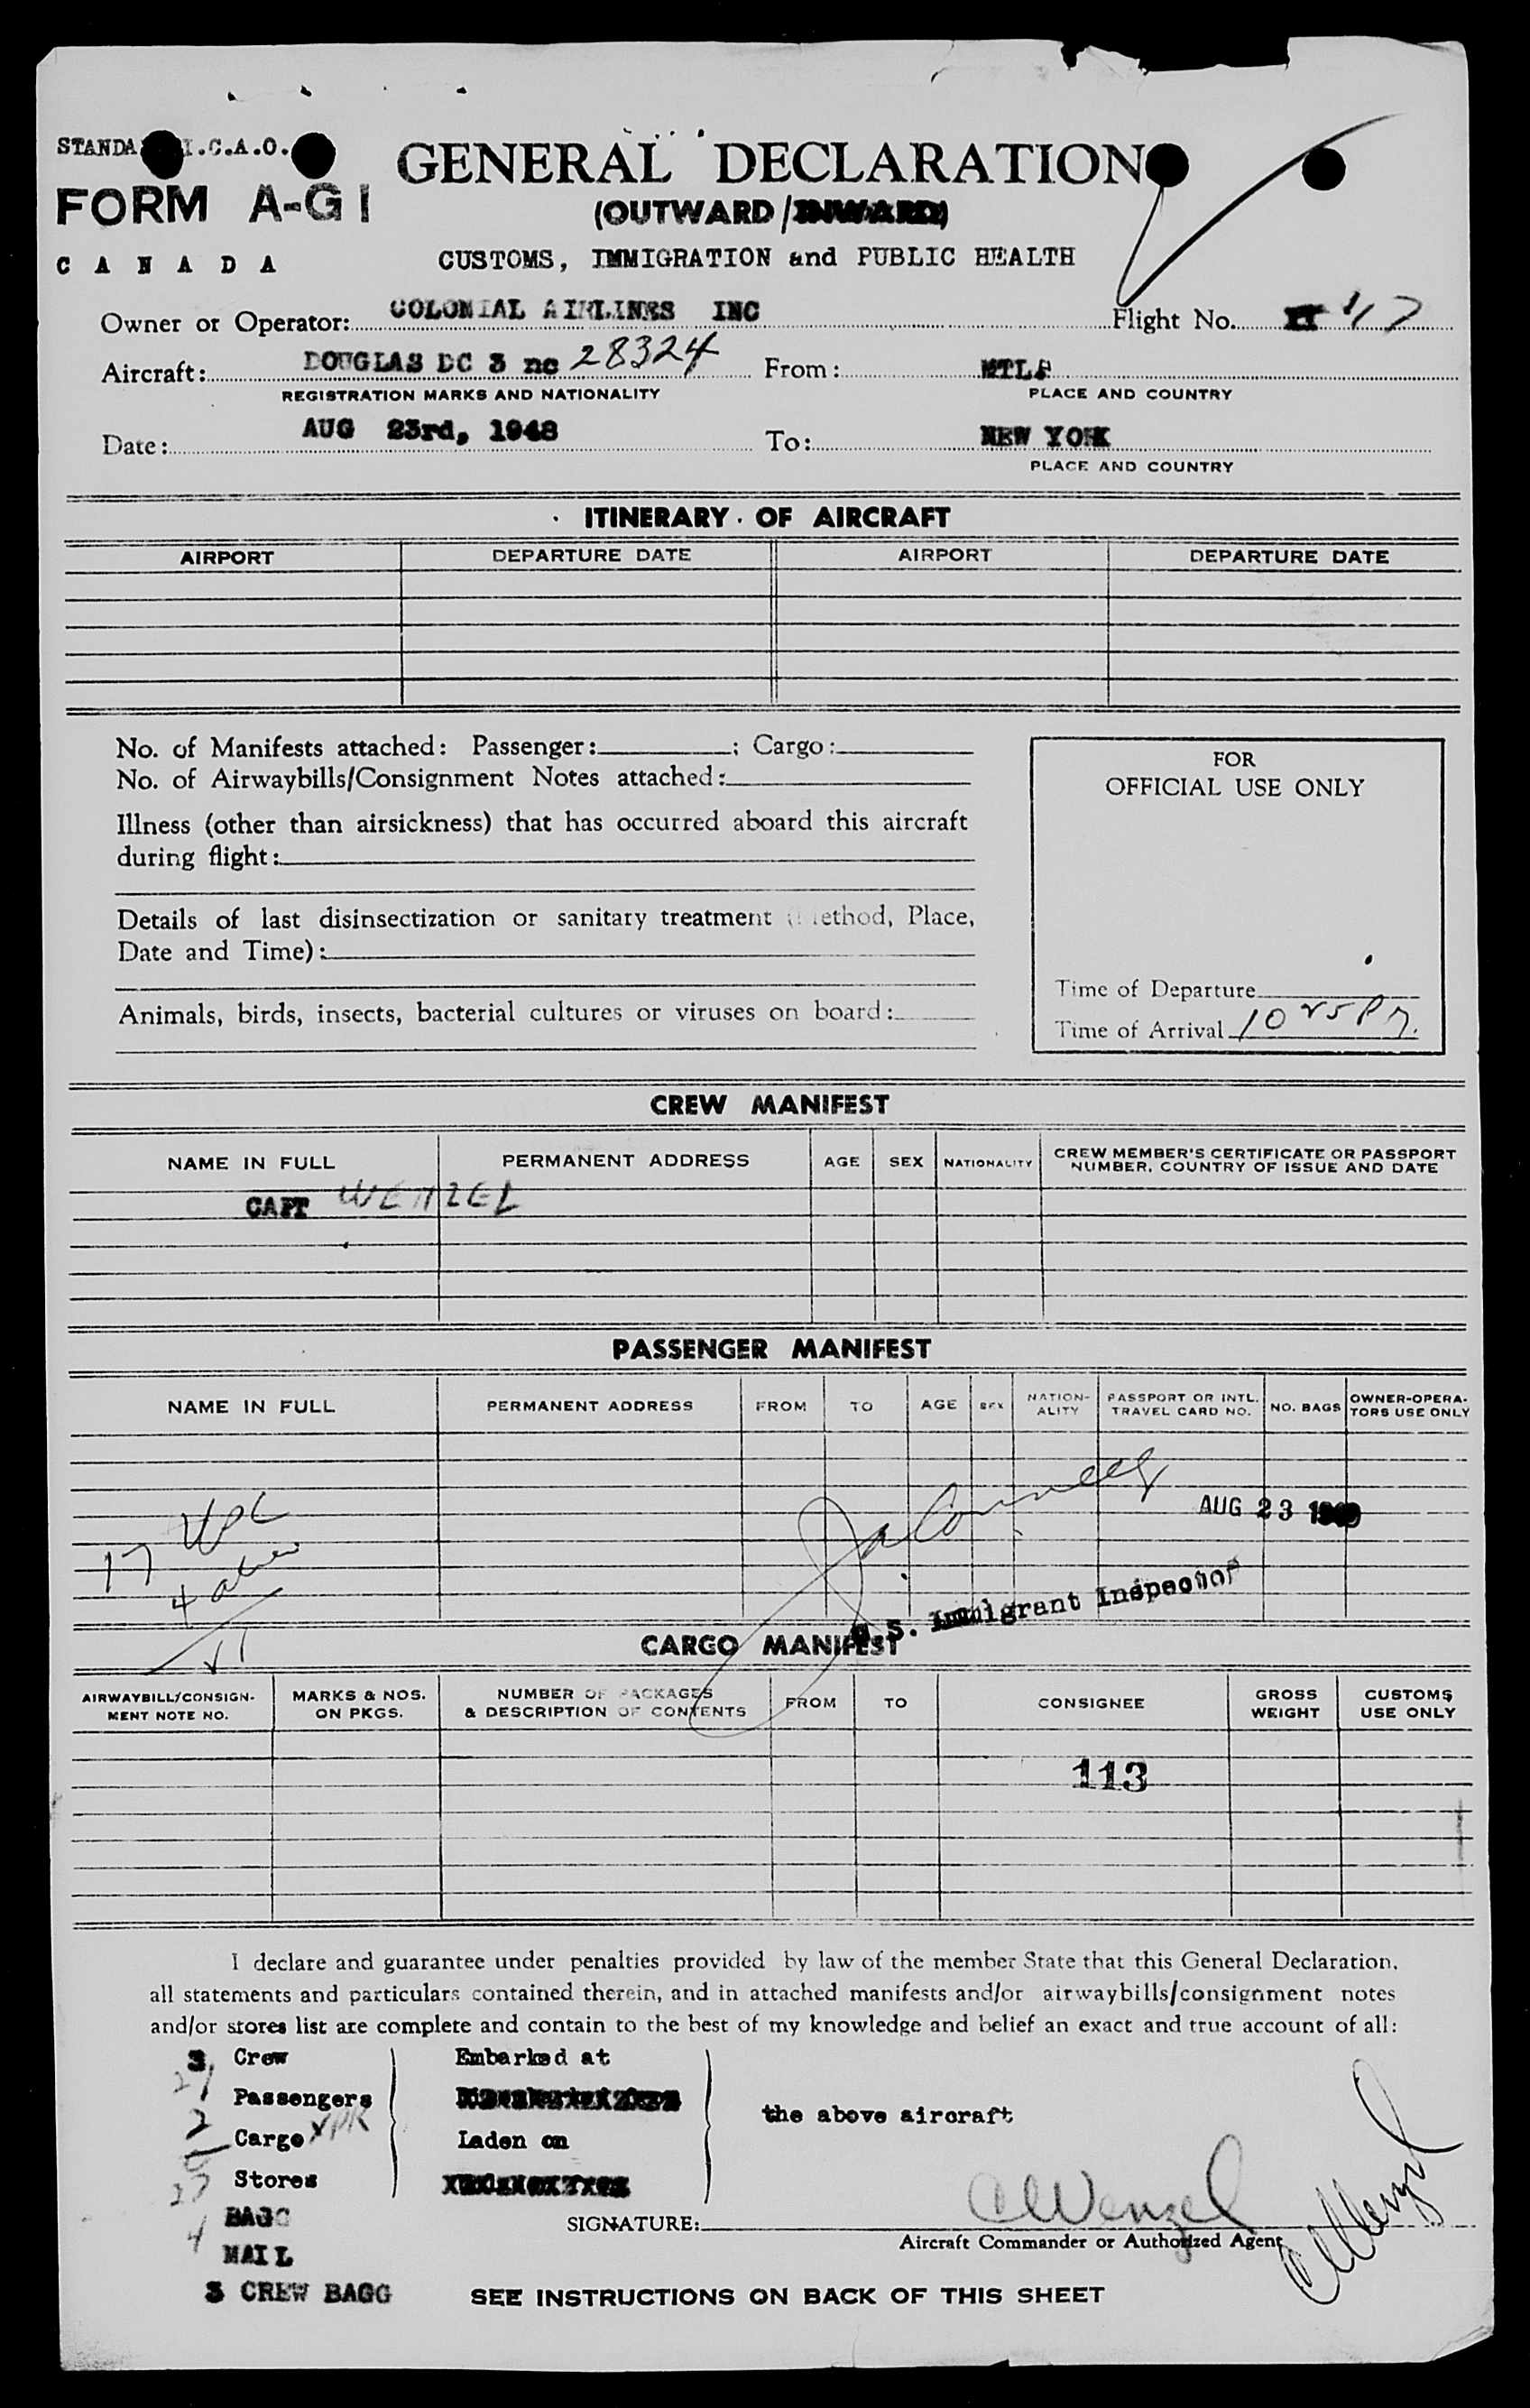 I.C.A.O.
FORM A-G1
GENERAL DECLARATION
(OUTWARD/INWARD)
CANADA
CUSTOMS, IMMIGRATION and PUBLIC HEALTH
Owner or Operator: COLONIAL AIRLINES INC Flight No. 417
Aircraft: DOUGLAS DC 3 nc 28324 From: MTLP
REGISTRATION MARKS AND NATIONALITY PLACE AND COUNTRY
Date: AUG 23rd, 1948 To: NEW YORK
PLACE AND COUNTRY
ITINERARY OF AIRCRAFT
AIRPORT DEPARTURE DATE AIRPORT DEPARTURE DATE
No. of Manifests attached: Passenger: ; Cargo:
No. of Airwaybills/Consignment Notes attached:
Illness (other than airsickness) that has occurred aboard this aircraft
during flight:
Details of last disinsectization or sanitary treatment (Method, Place,
Date and Time):
Animals, birds, insects, bacterial cultures or viruses on board:
FOR
OFFICIAL USE ONLY
Time of Departure
Time of Arrival 10 25 PM.
CREW MANIFEST
NAME IN FULL PERMANENT ADDRESS AGE SEX NATIONALITY CREW MEMBER'S CERTIFICATE OR PASSPORT
NUMBER, COUNTRY OF ISSUE AND DATE
CAPT WENZEL
PASSENGER MANIFEST
NAME IN FULL PERMANENT ADDRESS FROM TO AGE SEX NATION-
ALITY PASSPORT OR INTL.
TRAVEL CARD NO. NO. BAGS OWNER-OPERA-
TORS USE ONLY
AUG 23
17 USC
4 alien
21
U. S. Immigrant Inspector
CARGO MANIFEST
AIRWAYBILL/CONSIGN-
MENT NOTE NO. MARKS & NOS.
ON PKGS. NUMBER OF PACKAGES
& DESCRIPTION OF CONTENTS FROM TO CONSIGNEE GROSS
WEIGHT CUSTOMS
USE ONLY
113
I declare and guarantee under penalties provided by law of the member State that this General Declaration,
all statements and particulars contained therein, and in attached manifests and/or airwaybills/consignment notes
and/or stores list are complete and contain to the best of my knowledge and belief an exact and true account of all:
3 Crew Embarked at
21 Passengers
the above aircraft
2 Cargo Laden on
Stores
27 BAGG
4 MAIL
SIGNATURE: C Wenzel
Aircraft Commander or Authorized Agent
3 CREW BAGG
SEE INSTRUCTIONS ON BACK OF THIS SHEET